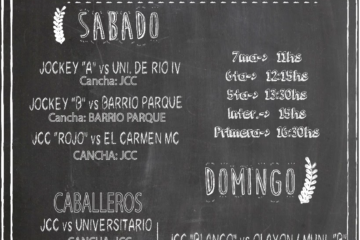 SABADO
JOCKEY "A" vs UNI. DE RIO IV
Cancha: JCC
JOCKEY "B" vs BARRIO PARQUE
Cancha: BARRIO PARQUE
JCC "ROJO" vs EL CARMEN MC
CANCHA: JCC
7ma-> 11hs
6ta-> 12:15hs
5ta-> 13:30hs
Inter.-> 15hs
Primera-> 16:30hs
DOMINGO
CABALLEROS
JCC vs UNIVERSITARIO
CANCHA: JCC
JCC "BLANCO" vs OLAYON / MUNI. "B"